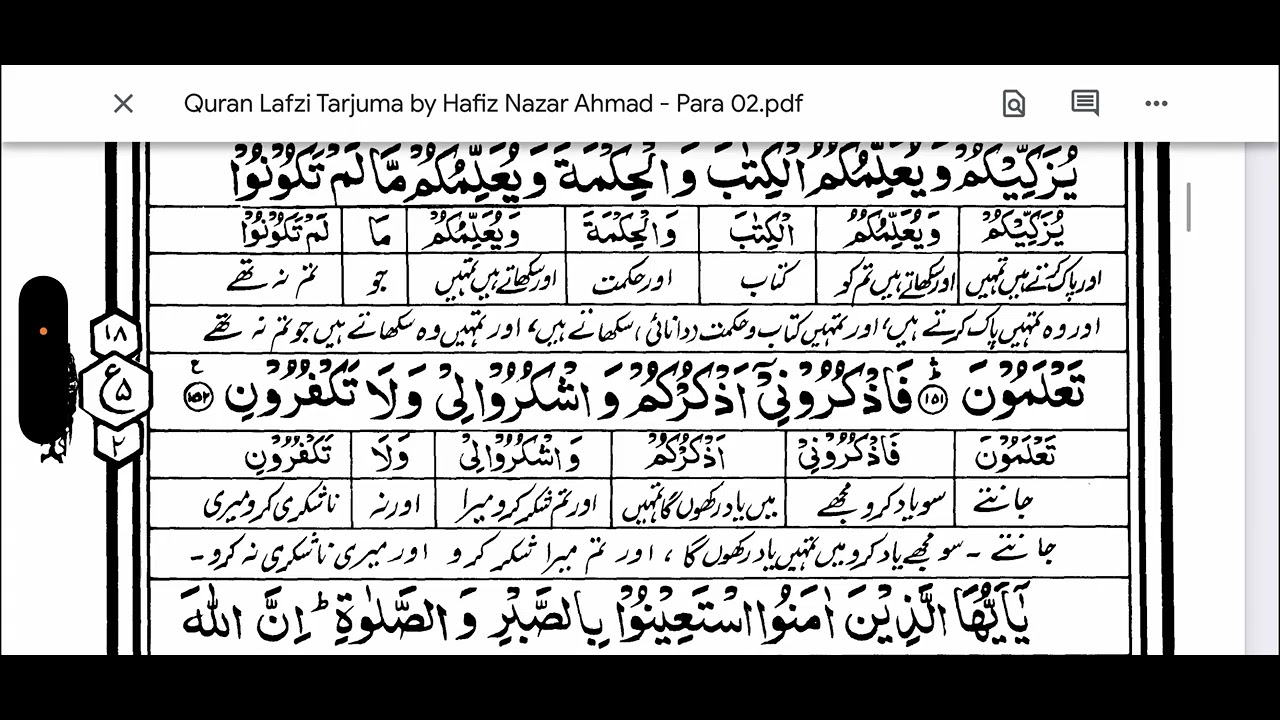 Quran Lafzi Tarjuma by Hafiz Nazar Ahmad - Para 02.pdf
يُزَكِّيْكُمْ وَ يُعَلِّمُكُمُ الْكِتٰبَ وَ الْحِكْمَةَ وَ يُعَلِّمُكُمْ مَّا لَمْ تَكُوْنُوْا
يُزَكِّيْكُمْ وَيُعَلِّمُكُمُ الْكِتٰبَ وَالْحِكْمَةَ وَيُعَلِّمُكُمْ مَا لَمْ تَكُوْنُوْا
اور پاک کرتے ہیں تمہیں اور سکھاتے ہیں تم کو کتاب اور حکمت اور سکھاتے ہیں تمہیں جو تم نہ تھے
اور وہ تمہیں پاک کرتے ہیں، اور تمہیں کتاب و حکمت (دانائی) سکھاتے ہیں، اور تمہیں وہ سکھاتے ہیں جو تم نہ تھے
١٨
تَعْلَمُوْنَ ؕ ١٥١ فَاذْكُرُوْنِيْۤ اَذْكُرْكُمْ وَ اشْكُرُوْا لِيْ وَ لَا تَكْفُرُوْنِ ع ١٥٢
ع ٥
تَعْلَمُوْنَ فَاذْكُرُوْنِيْ اَذْكُرْكُمْ وَاشْكُرُوْا لِيْ وَلَا تَكْفُرُوْنِ
٢
جانتے سو یاد کرو مجھے میں یاد رکھوں گا تمہیں اور تم شکر کرو میرا اور نہ ناشکری کرو میری
جانتے ۔ سو مجھے یاد کرو میں تمہیں یاد رکھوں گا ، اور تم میرا شکر کرو اور میری ناشکری نہ کرو ۔
يٰۤاَيُّهَا الَّذِيْنَ اٰمَنُوا اسْتَعِيْنُوْا بِالصَّبْرِ وَ الصَّلٰوةِ ؕ اِنَّ اللّٰهَ